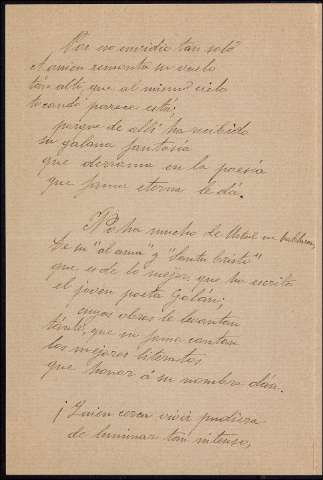 Por no envidia tan solo
A quien remonta su vuelo
tan alto, que al mismo cielo
tocando parece está;
parece de allí ha recibido
su galana fantasía
que derrama en la poesía
que fama eterna le dá.
No ha mucho de Usted me hablaron,
De su "al alma" y "Santu Cristo"
que es de lo mejor que ha escrito
el joven poeta Gálán;
cuyas obras le levantan
tánto, que su fama cantan
los mejores literatos
que honor á su nombre dán.
¡Quien cerca vivir pudiera
de luminar tan intenso,